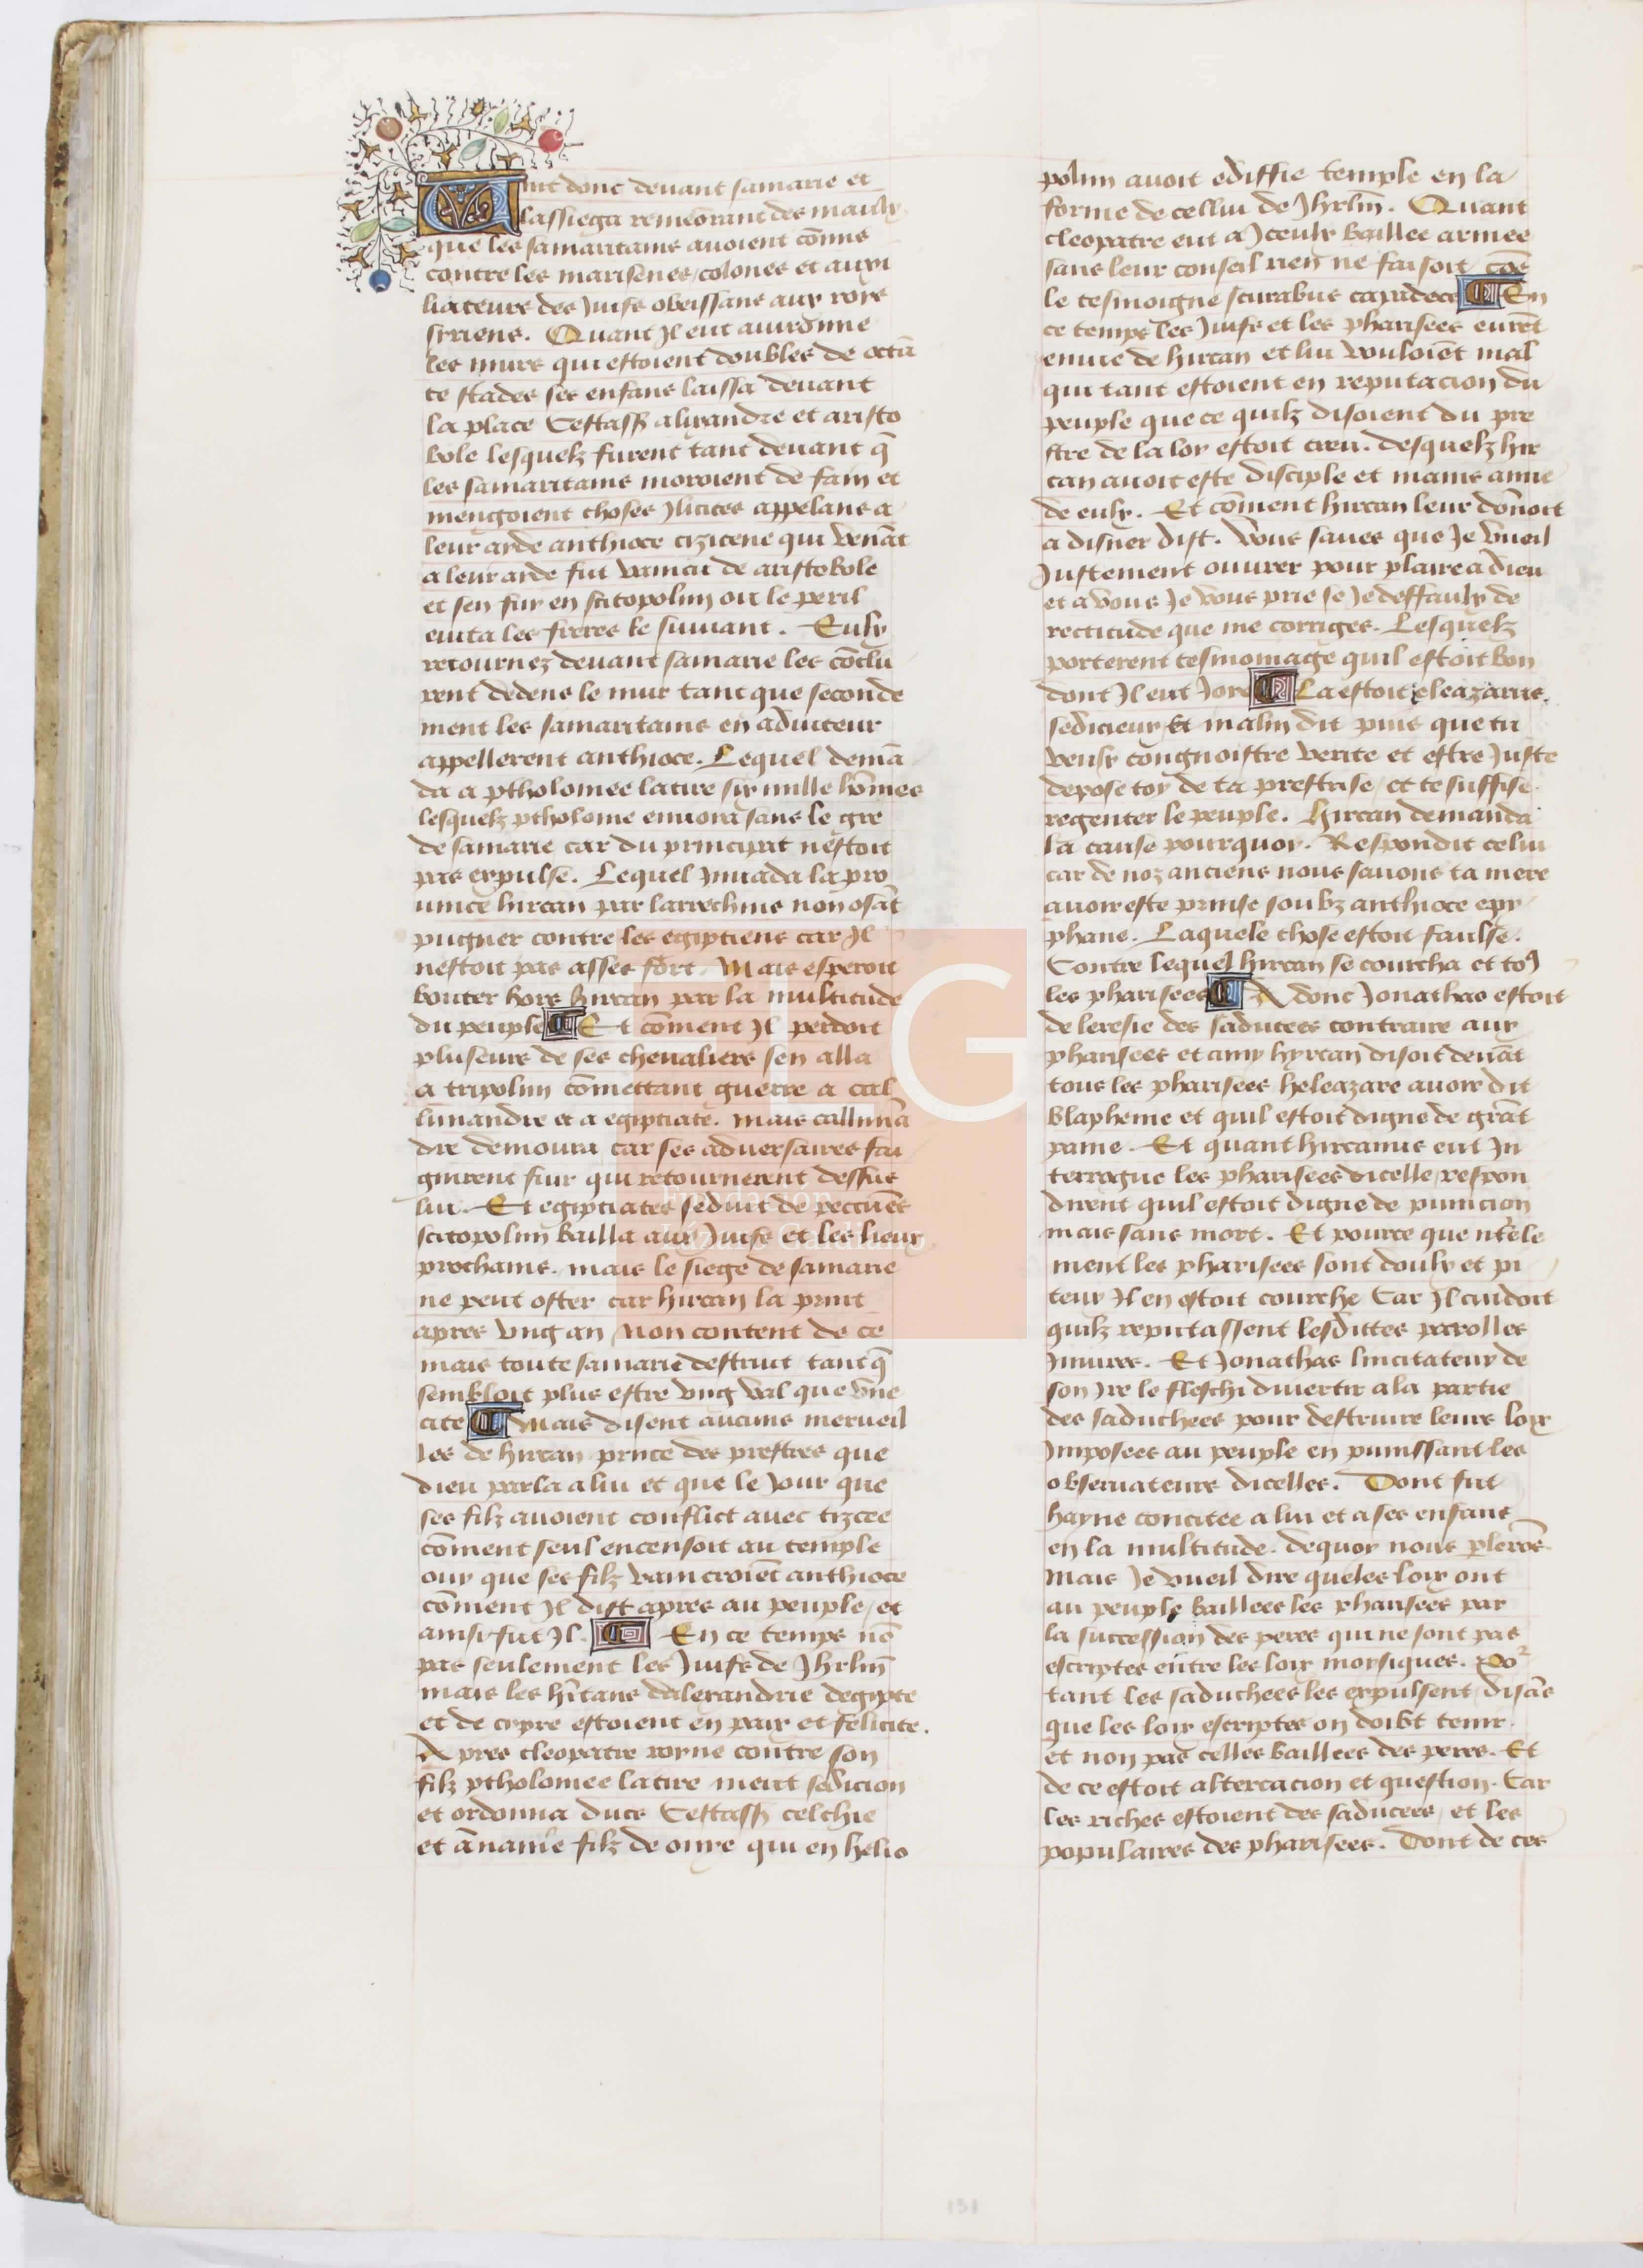 Vint donc deuant samarie et
lassiega remēorant des maulx
que les samaritains auoient cōmis
contre les marisenes colones et auxi
liateurs des Juifs obeissans aux roys
siriens. Quant Il eut auirōnne
les murs qui estoient doubles de octā
te stades ses enfans laissa deuant
la place Cestass alixandre et aristo
bole lesquelz furent tant deuant q̄
les samaritains moroient de fain et
mengoient choses Jlicites appelans a
leur ayde anthioce cizicene qui venāt
a leur ayde fut vaincu de aristobole
et sen fuy en scitopolim ou le peril
euita les freres le suiuant. Eulx
retournez deuant samarie les cōclu
rent dedens le mur tant que seconde
ment les samaritains en aduiteur
appellerent anthioce. Lequel demā
da a ptholomee latire six mille hōmes
lesquelz ptholome enuoia sans le gre
de samarie car du principat nestoit
pas expulse. Lequel Jnuada la pro
uince hircan par larrechins non osāt
pugner contre les egiptiens car Jl
nestoit pas asses fort. Mais esperoit
bouter hors hircan par la multitude
du peuple Et cōment Jl perdoit
pluseurs de ses cheualiers sen alla
a tripolim cōmettant guerre a cal
limandre et a egipciate. mais callimā
dre demoura car ses aduersaires fai
gnirent fuir qui retournerent dessus
lui. Et egipciates seduit de peccunes
scitopolim bailla aux Juifs et les lieux
prochains. mais le siege de samarie
ne peut oster car hircan la print
apres vng an Non content de ce
mais toute samarie destruit tant q̄
sembloit plus estre vng val que vne
cite Mais disent aucuns merueil
les de hircan prince des prestres que
dieu parla a lui et que le Jour que
ses filz auoient conflict auec cizcee
cōment seul encensoit au temple
ouy que ses filz vaincroiēt anthioce
cōment Jl dist apres au peuple et
ainsi fut Jl. En ce temps nō
pas seulement les Juifs de Jhrlm̄
mais les hītans dalexandrie degipte
et de cypre estoient en paix et felicite.
Apres cleopatre royne contre son
filz ptholomee latire meut sedicion
et ordonna ducs Cestass celchie
et ānanie filz de onye qui en helio
polim auoit ediffie temple en la
forme de cellui de Jhrlm̄. Quant
cleopatre eut a Jceulx baillee armee
sans leur conseil rien ne faisoit cōe
le tesmoigne scurabus capadoce En
ce temps les Juifs et les pharisees eurēt
enuie de hircan et lui vouloiēt mal
qui tant estoient en reputacion du
peuple que ce quilz disoient du pre
stre de la loy estoit creu. desquelz hir
can auoit este disciple et mains aime
de eulx. Et cōment hircan leur dōnoit
a disner dist. Vous saues que Je vueil
Justement ouurer pour plaire a dieu
et a vous Je vous prie se Je deffaulx de
rectitude que me corriges. Lesquelz
porterent tesmoinage quil estoit bon
dont Jl eut Joye La estoit eleazarus
sedicieux et malin dit puis que tu
veulx congnoistre verite et estre Juste
depose toy de ta prestrise et te suffise
regenter le peuple. hircan demanda
la cause pourquoy. Respondit celui
car de noz anciens nous sauons ta mere
auoir este prinse soubz anthioce epy
phane. Laquele chose estoit faulse.
Contre lequel hircan se courcha et to9
les pharisees Adonc Jonathas estoit
de leresie des saducees contraire aux
pharisees et amy hyrcan disoit deuāt
tous les pharisees heleazare auoir dit
blapheme et quil estoit digne de grāt
paine. Et quant hircanus eut In
terrogue les pharisees dicelle respon
dirent quil estoit digne de punicion
mais sans mort. Et pource que ntēle
ment les pharisees sont doulx et pi
teux Jl en estoit courche Car Jl cuidoit
quilz reputassent lesdittes parolles
Jniures. Et Jonathas lincitateur de
son Jre le fleschi diuertir a la partie
des saduchees pour destruire leurs loix
Jmposees au peuple en punissant les
obseruateurs dicelles. Dont fut
hayne concitee a lui et a ses enfans
en la multitude. dequoy nous plerōs
Mais Je vueil dire queles loix ont
au peuple baillees les pharisees par
la succession des peres qui ne sont pas
escriptes entre les loix moysiques. Po2
tant les saduchees les expulsent disās
que les loix escriptes on doibt tenir.
et non pas celles baillees des peres. Et
de ce estoit altercacion et question. Car
les riches estoient des saducees et les
populaires des pharisees. Dont de ces
Fundación
Lázaro Galdiano
151